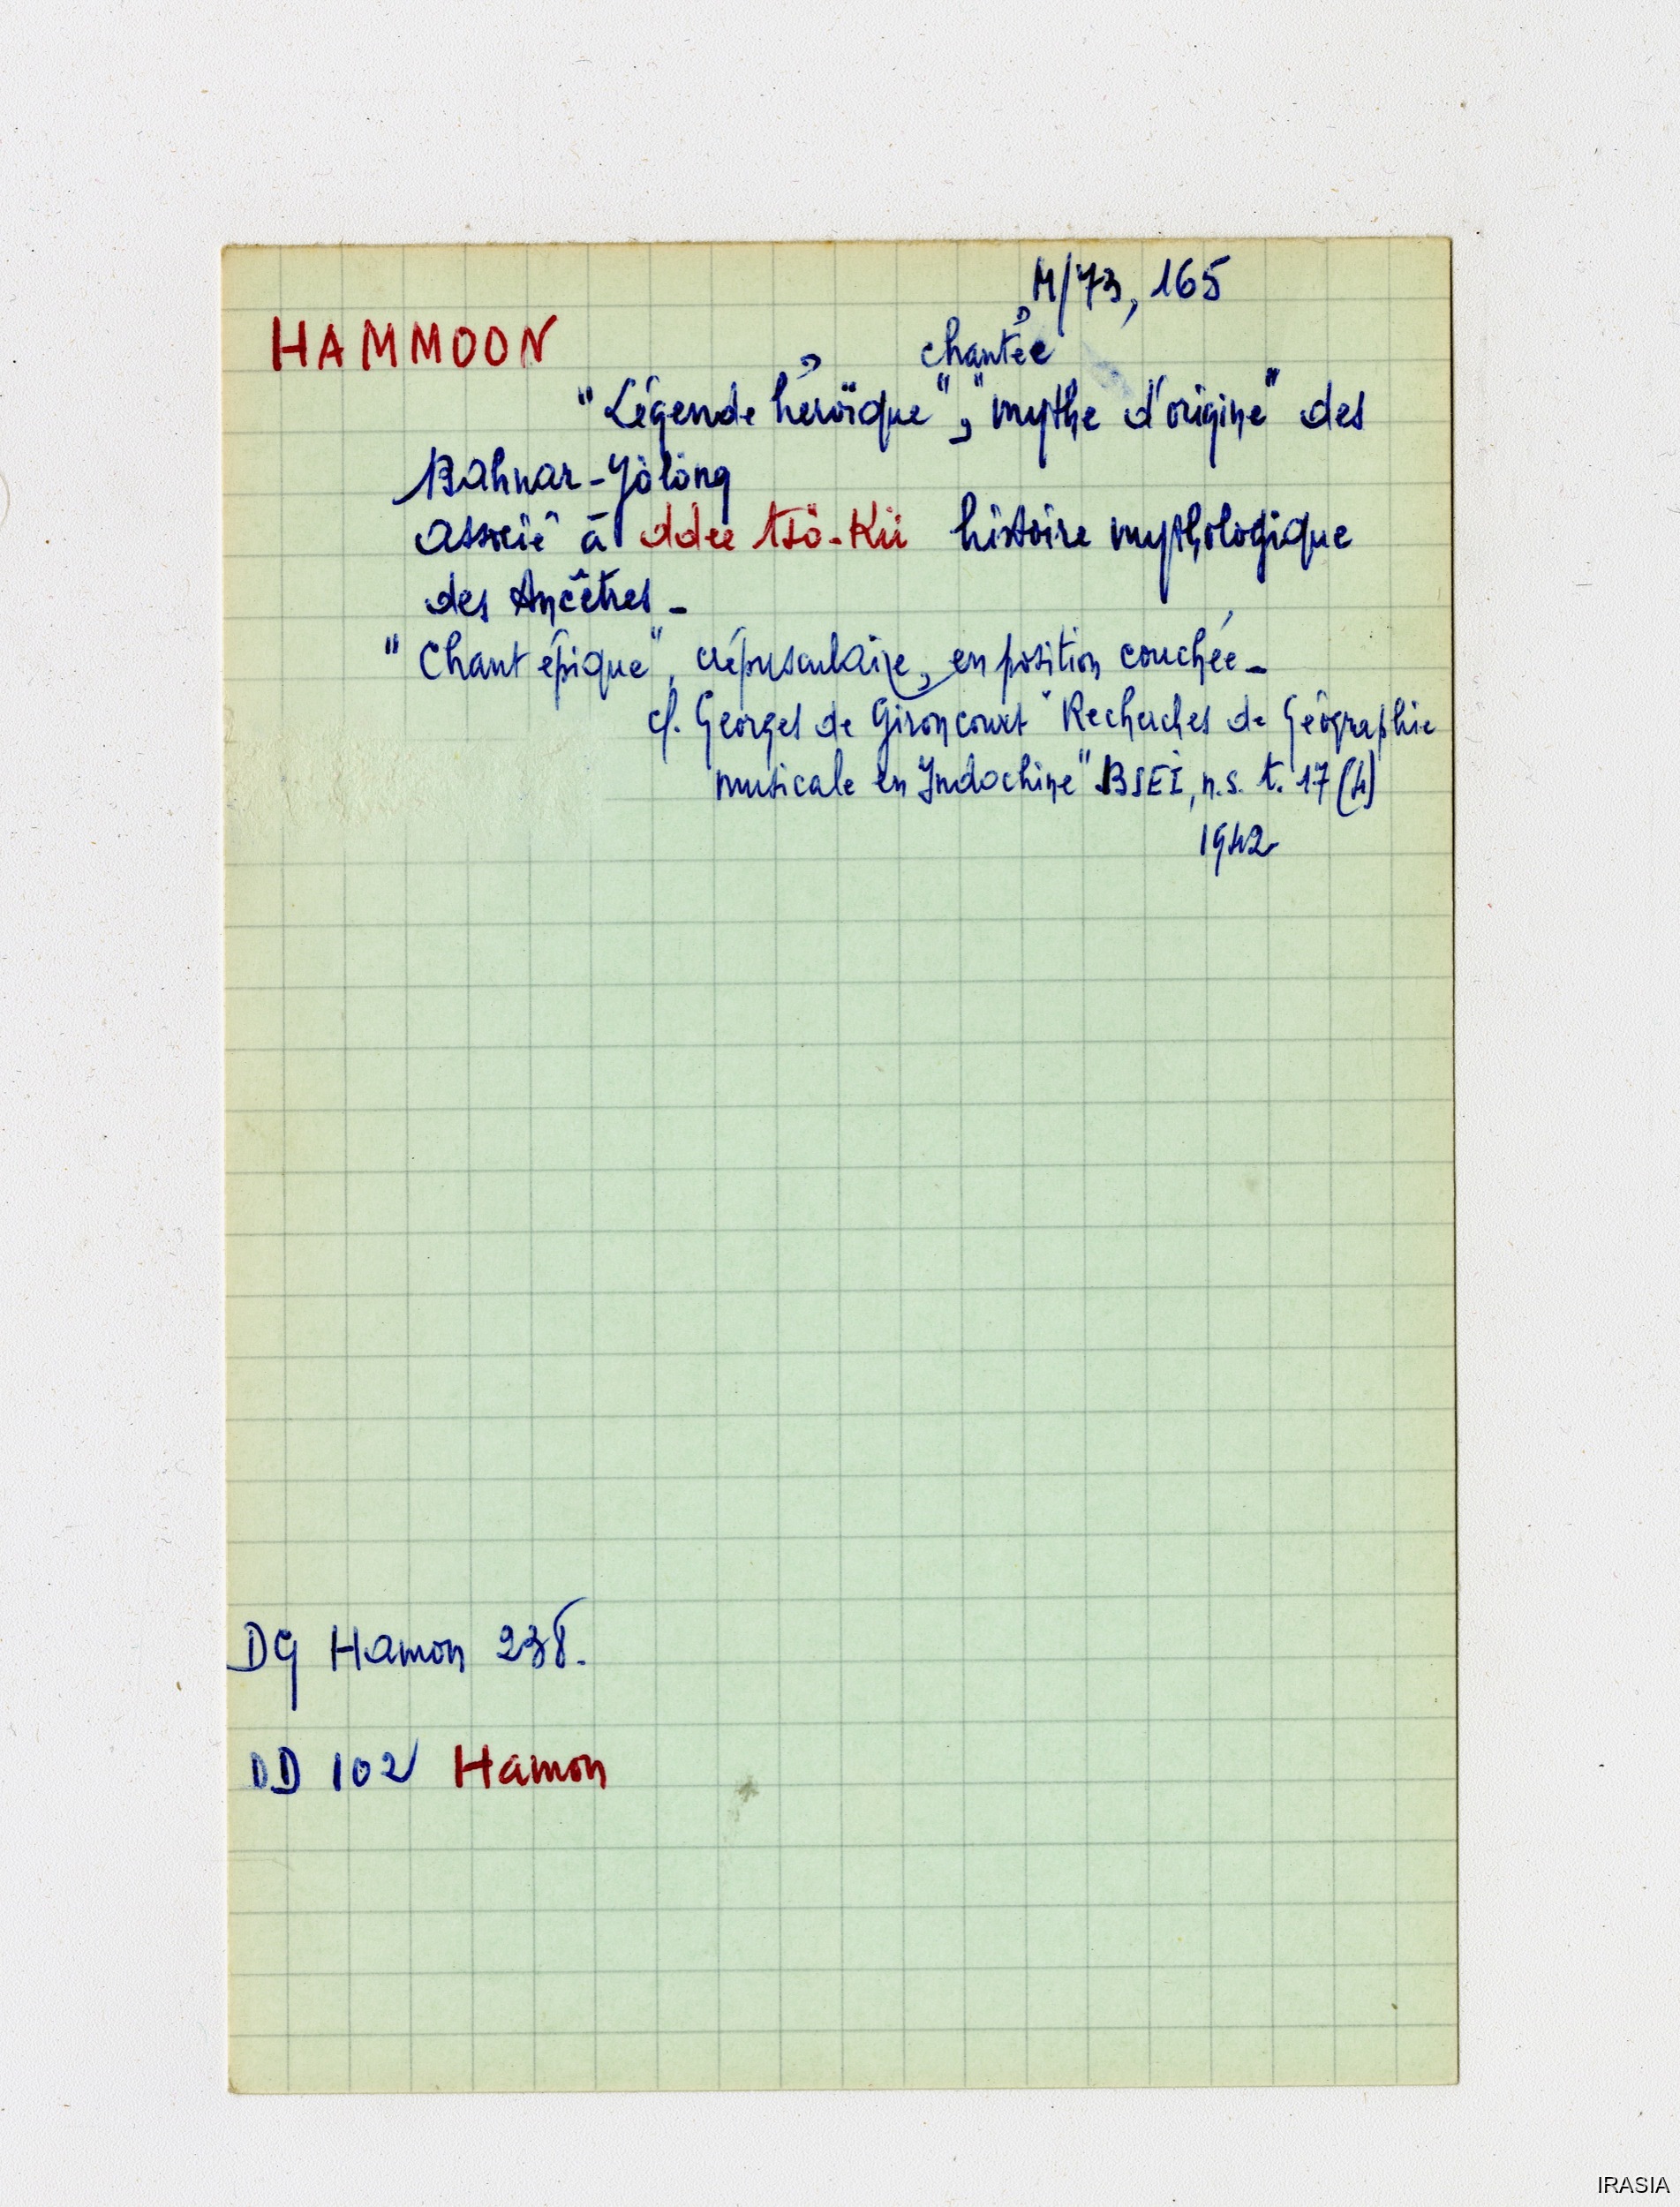 M/73, 165
HAMMOON
chantée
"Légende héroïque", "mythe d'origine" des
Bahnar-Jölöng
associé à ddee tsö-Kü histoire mythologique
des Ancêtres_
"Chant épique", crépusculaire, en position couchée_
cf. Georges de Gironcourt "Recherches de Géographie
musicale en Indochine" BSEI, n.s. t. 17 (4)
1942
DG Hamon 238.
DD 102 Hamon
IRASIA